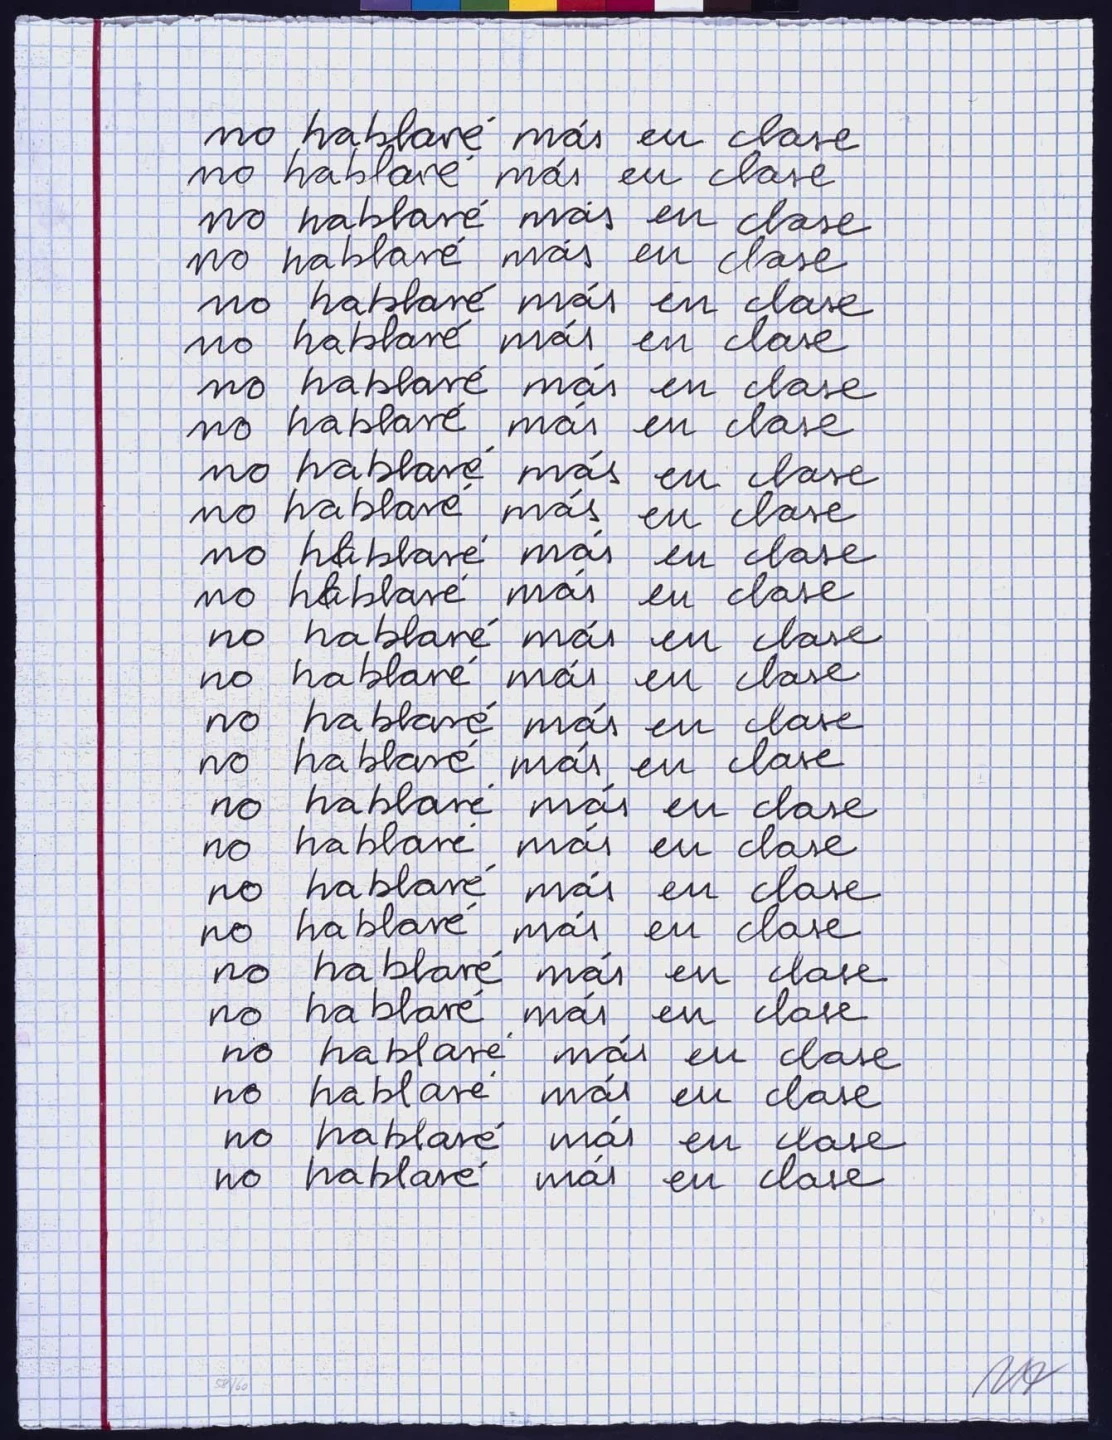 no hablaré más en clase
no hablaré más en clase
no hablaré más en clase
no hablaré más en clase
no hablaré más en clase
no hablaré más en clase
no hablaré más en clase
no hablaré más en clase
no hablaré más en clase
no hablaré más en clase
no hablaré más en clase
no hablaré más en clase
no hablaré más en clase
no hablaré más en clase
no hablaré más en clase
no hablaré más en clase
no hablaré más en clase
no hablaré más en clase
no hablaré más en clase
no hablaré más en clase
no hablaré más en clase
no hablaré más en clase
no hablaré más en clase
no hablaré más en clase
no hablaré más en clase
no hablaré más en clase
58/60